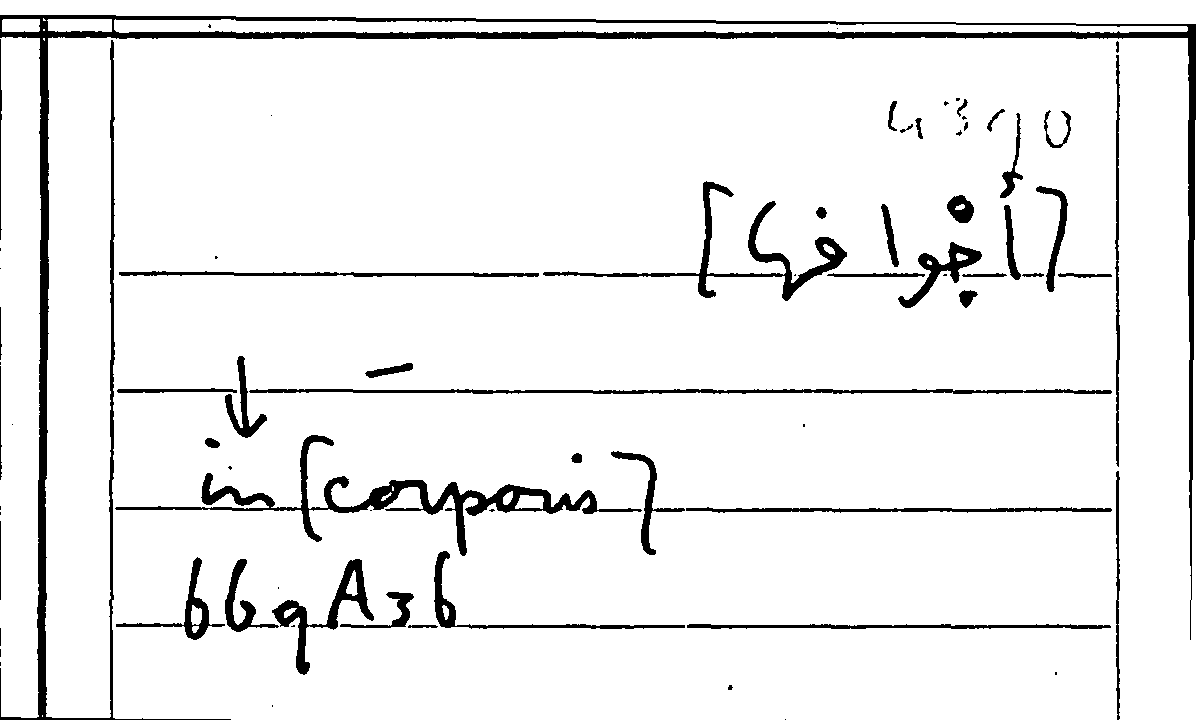 4390
[أجْوافها]
↓ –
in [corporis]
669A36